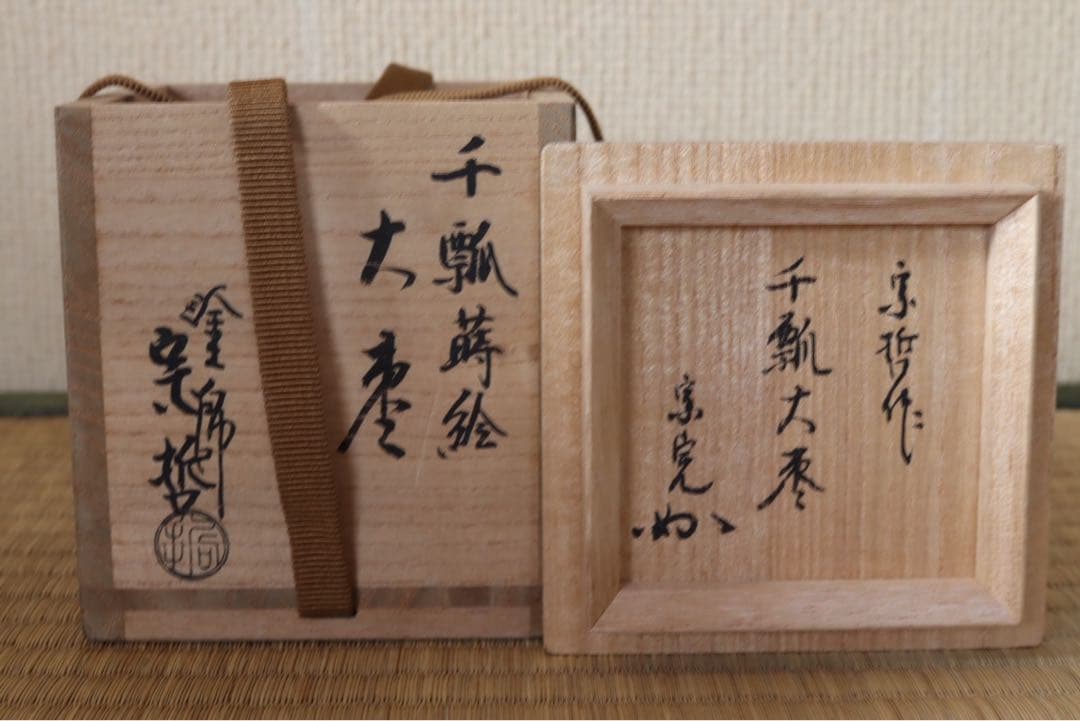 千瓢蒔絵
大棗
塗師
宗哲
哲
宗哲作
千瓢大棗
宗完